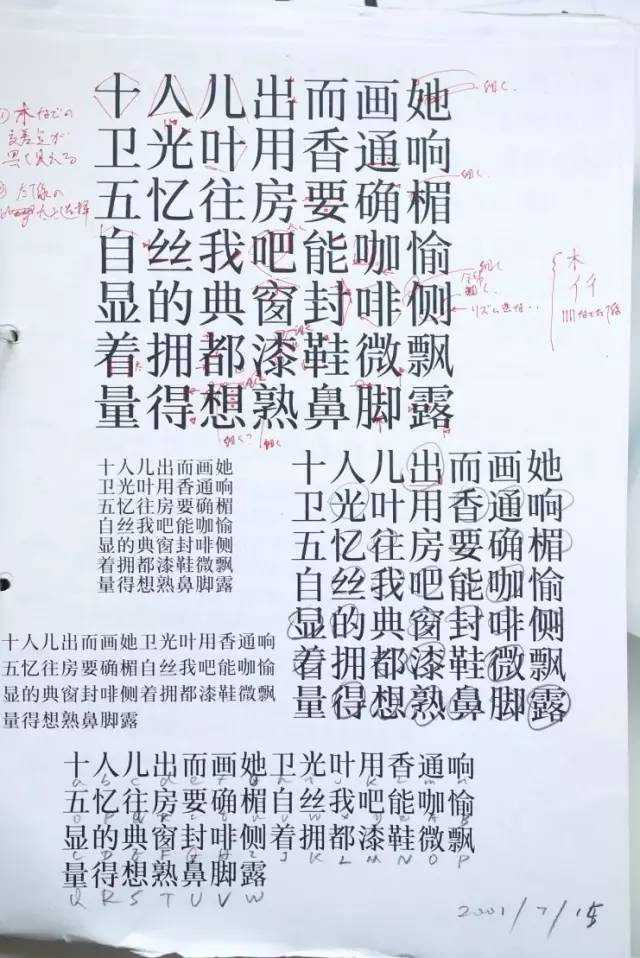 十人儿出而画她
卫光叶用香通响
五忆往房要确楣
自丝我吧能咖愉
显的典窗封啡侧
着拥都漆鞋微飘
量得想熟鼻脚露
十人儿出而画她
卫光叶用香通响
五忆往房要确楣
自丝我吧能咖愉
显的典窗封啡侧
着拥都漆鞋微飘
量得想熟鼻脚露
十人儿出而画她
卫光叶用香通响
五忆往房要确楣
自丝我吧能咖愉
显的典窗封啡侧
着拥都漆鞋微飘
量得想熟鼻脚露
十人儿出而画她卫光叶用香通响
五忆往房要确楣自丝我吧能咖愉
显的典窗封啡侧着拥都漆鞋微飘
量得想熟鼻脚露
十人儿出而画她卫光叶用香通响
五忆往房要确楣自丝我吧能咖愉
显的典窗封啡侧着拥都漆鞋微飘
J K L M N O P
量得想熟鼻脚露
Q R S T U V W
2001/7/15